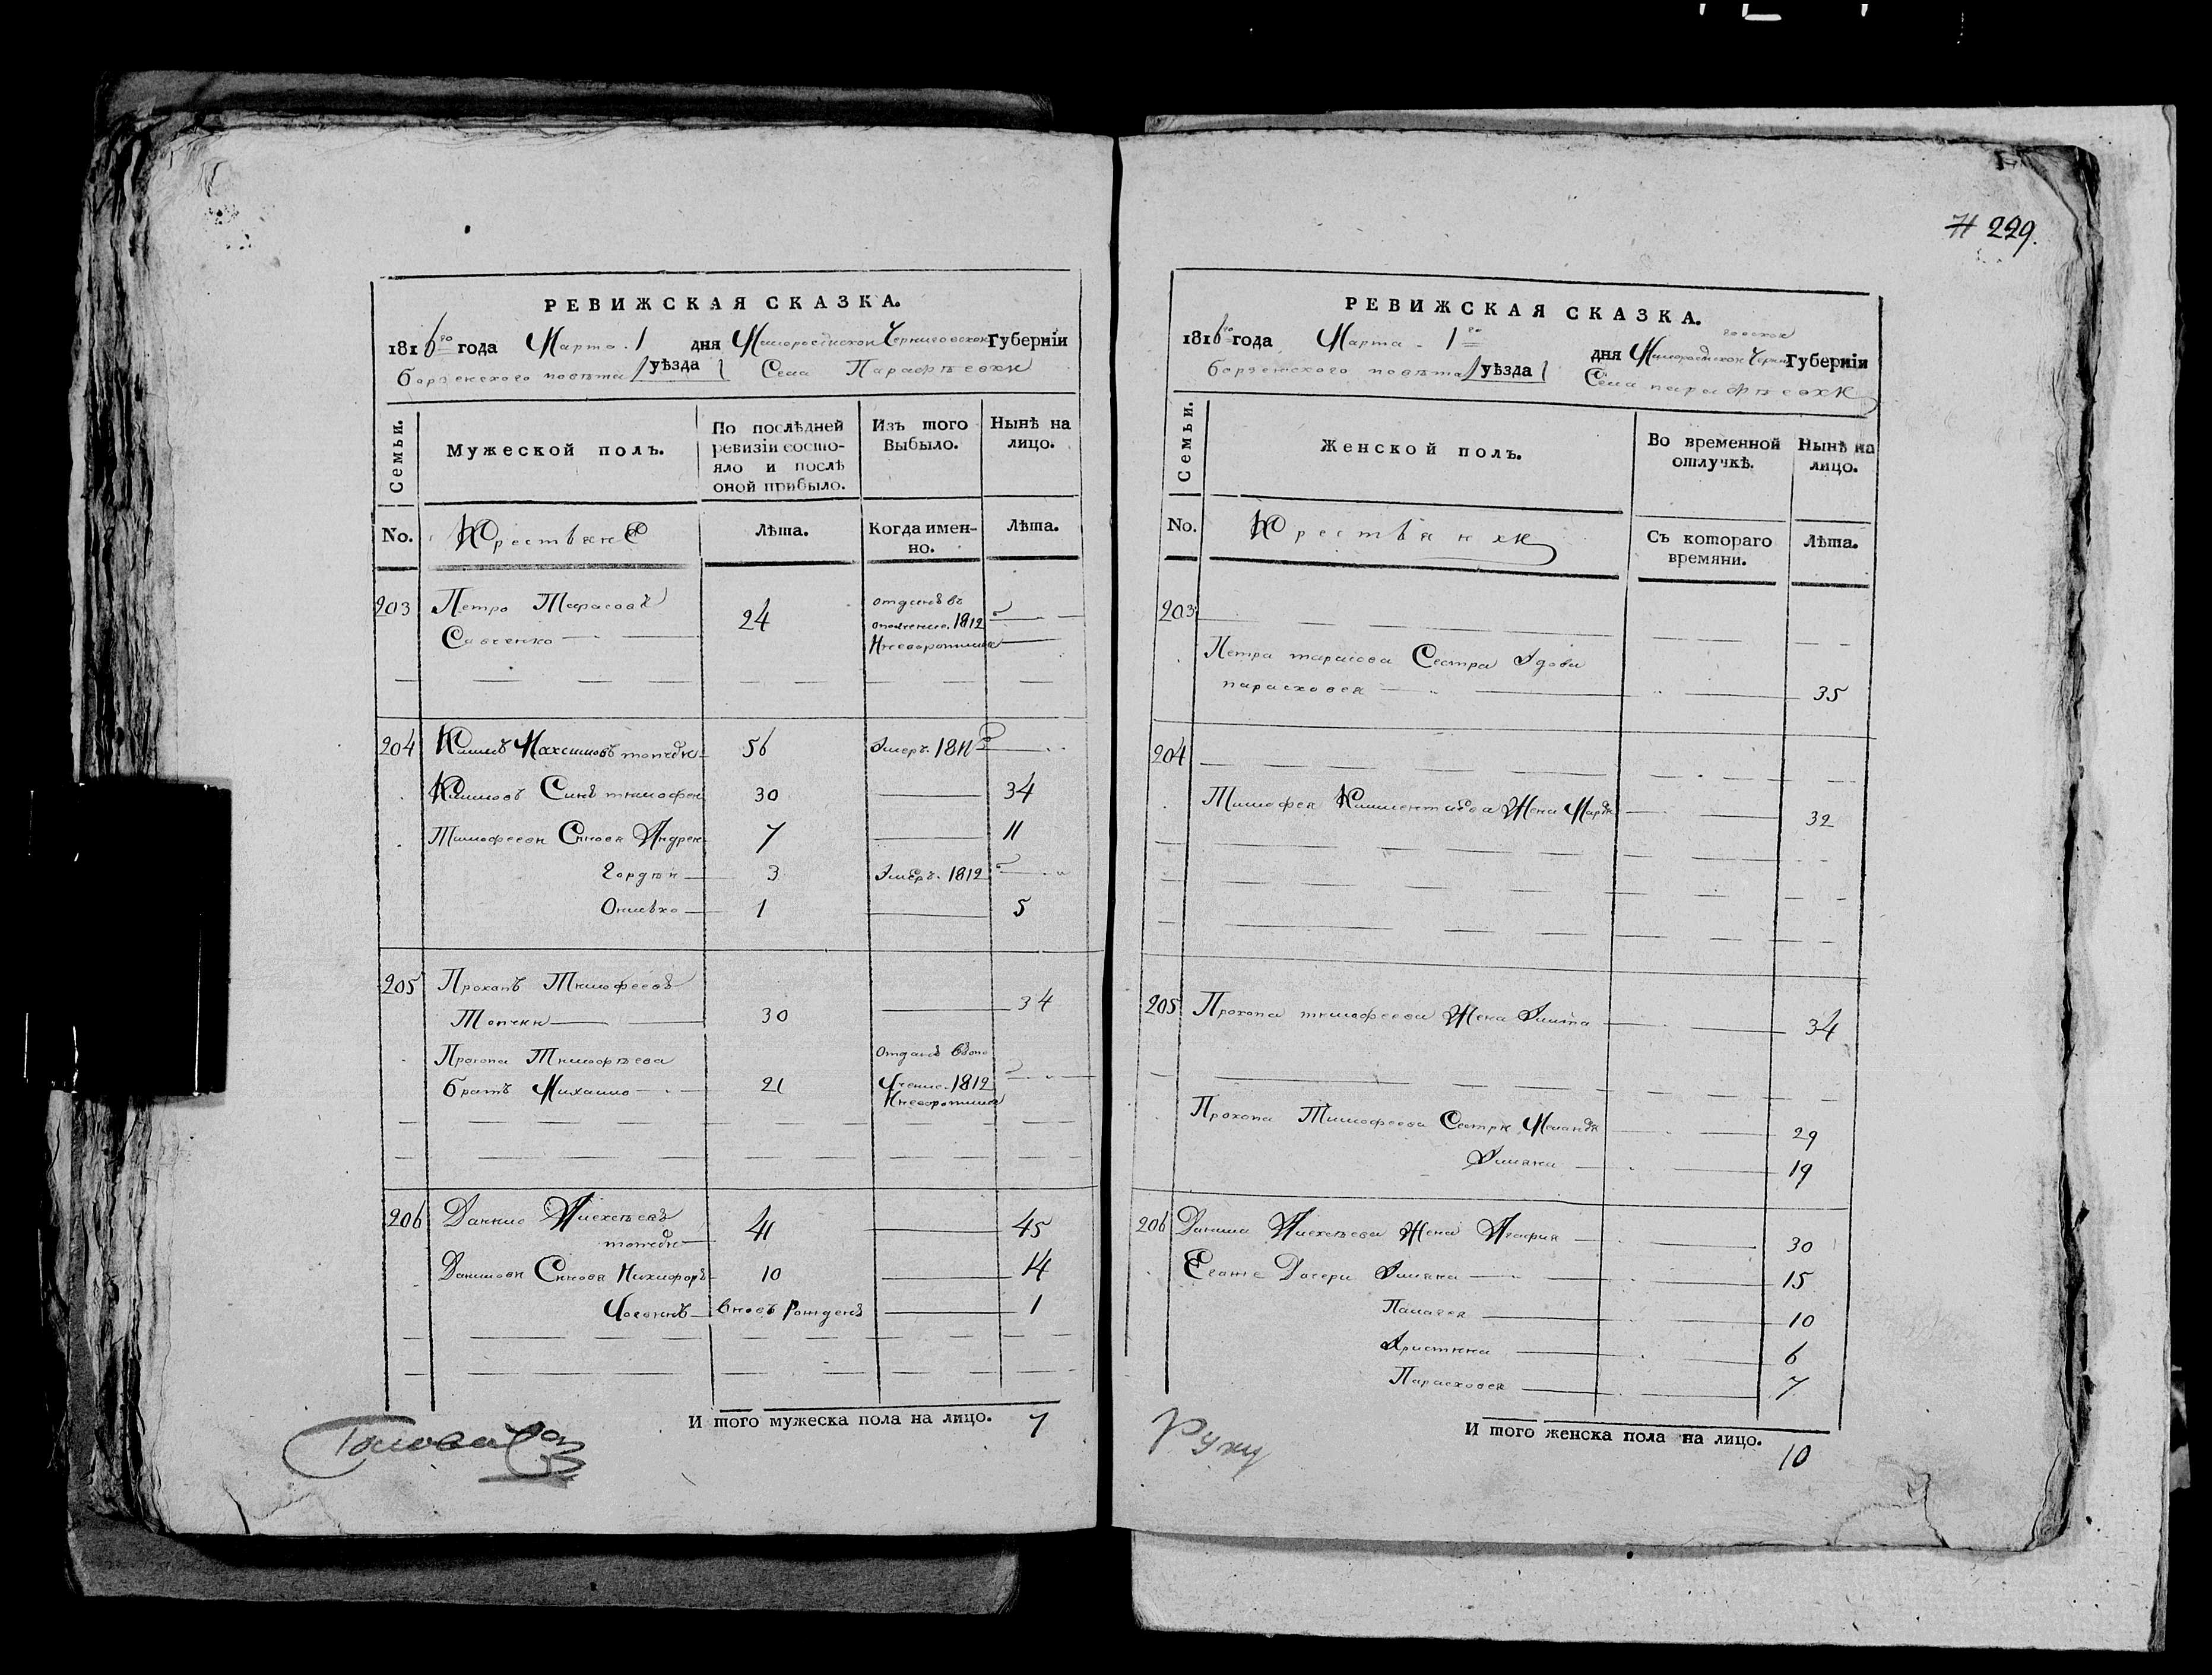 229.
РЕВИЖСКАЯ СКАЗКА.
1816го года Марта 1 дня Малоросійской Черниговской Губерніи
борзенского повѣта уѣзда Села Парафѣевки
Семьи.
Мужеской полъ.
По послѣдней ревизіи состо-
яло и послѣ
оной прибыло.
Изъ того
выбыло.
Нынѣ на
лицо.
No. Крестьяне
Лѣта.
Когда имен-
но.
Лѣта.
203 Петро Тарасовъ
Савченко 24 отданъ въ
ополчение 1812
204 Климъ Максимовъ 56 Умеръ 1811
Климовъ Синъ тимофей 30 34
Тимофеевы Синовя Андрей 7 11
Гордѣй 3 Умеръ 1812
1 5
205 Прокопъ Тимофеевъ
Топчий 30 34
Прокопа Тимофѣева
братъ Михайло 21 Отданъ в опо
лчение 1812
206 Данило Алексѣевъ 41 45
Даниловы Синовя Никифоръ 10 14
вновъ рожденъ 1
И того мужеска пола на лицо. 7
РЕВИЖСКАЯ СКАЗКА.
1816го года Марта 1го дня Малоросійской Черниговской Губерніи
борзенского повѣта уѣзда Села парафѣевки
Семьи.
Женской полъ.
Во временной
отлучкѣ.
Нынѣ на
лицо.
No. Крестьянки
Съ котораго
времяни.
Лѣта.
203
Петра тарасова Сестра Удова
парасковея 35
204
Тимофея Климентиева Жена 32
205 Прокопа тимофеева Жена Улита 34
Прокопа Тимофеева Сестри 29
Уляна 19
206 Данила Алексѣева Жена Агафия 30
Еганже Дочери Уляна 15
Палагея 10
Христина 6
Парасковея 7
И того женска пола на лицо.
10
Руку